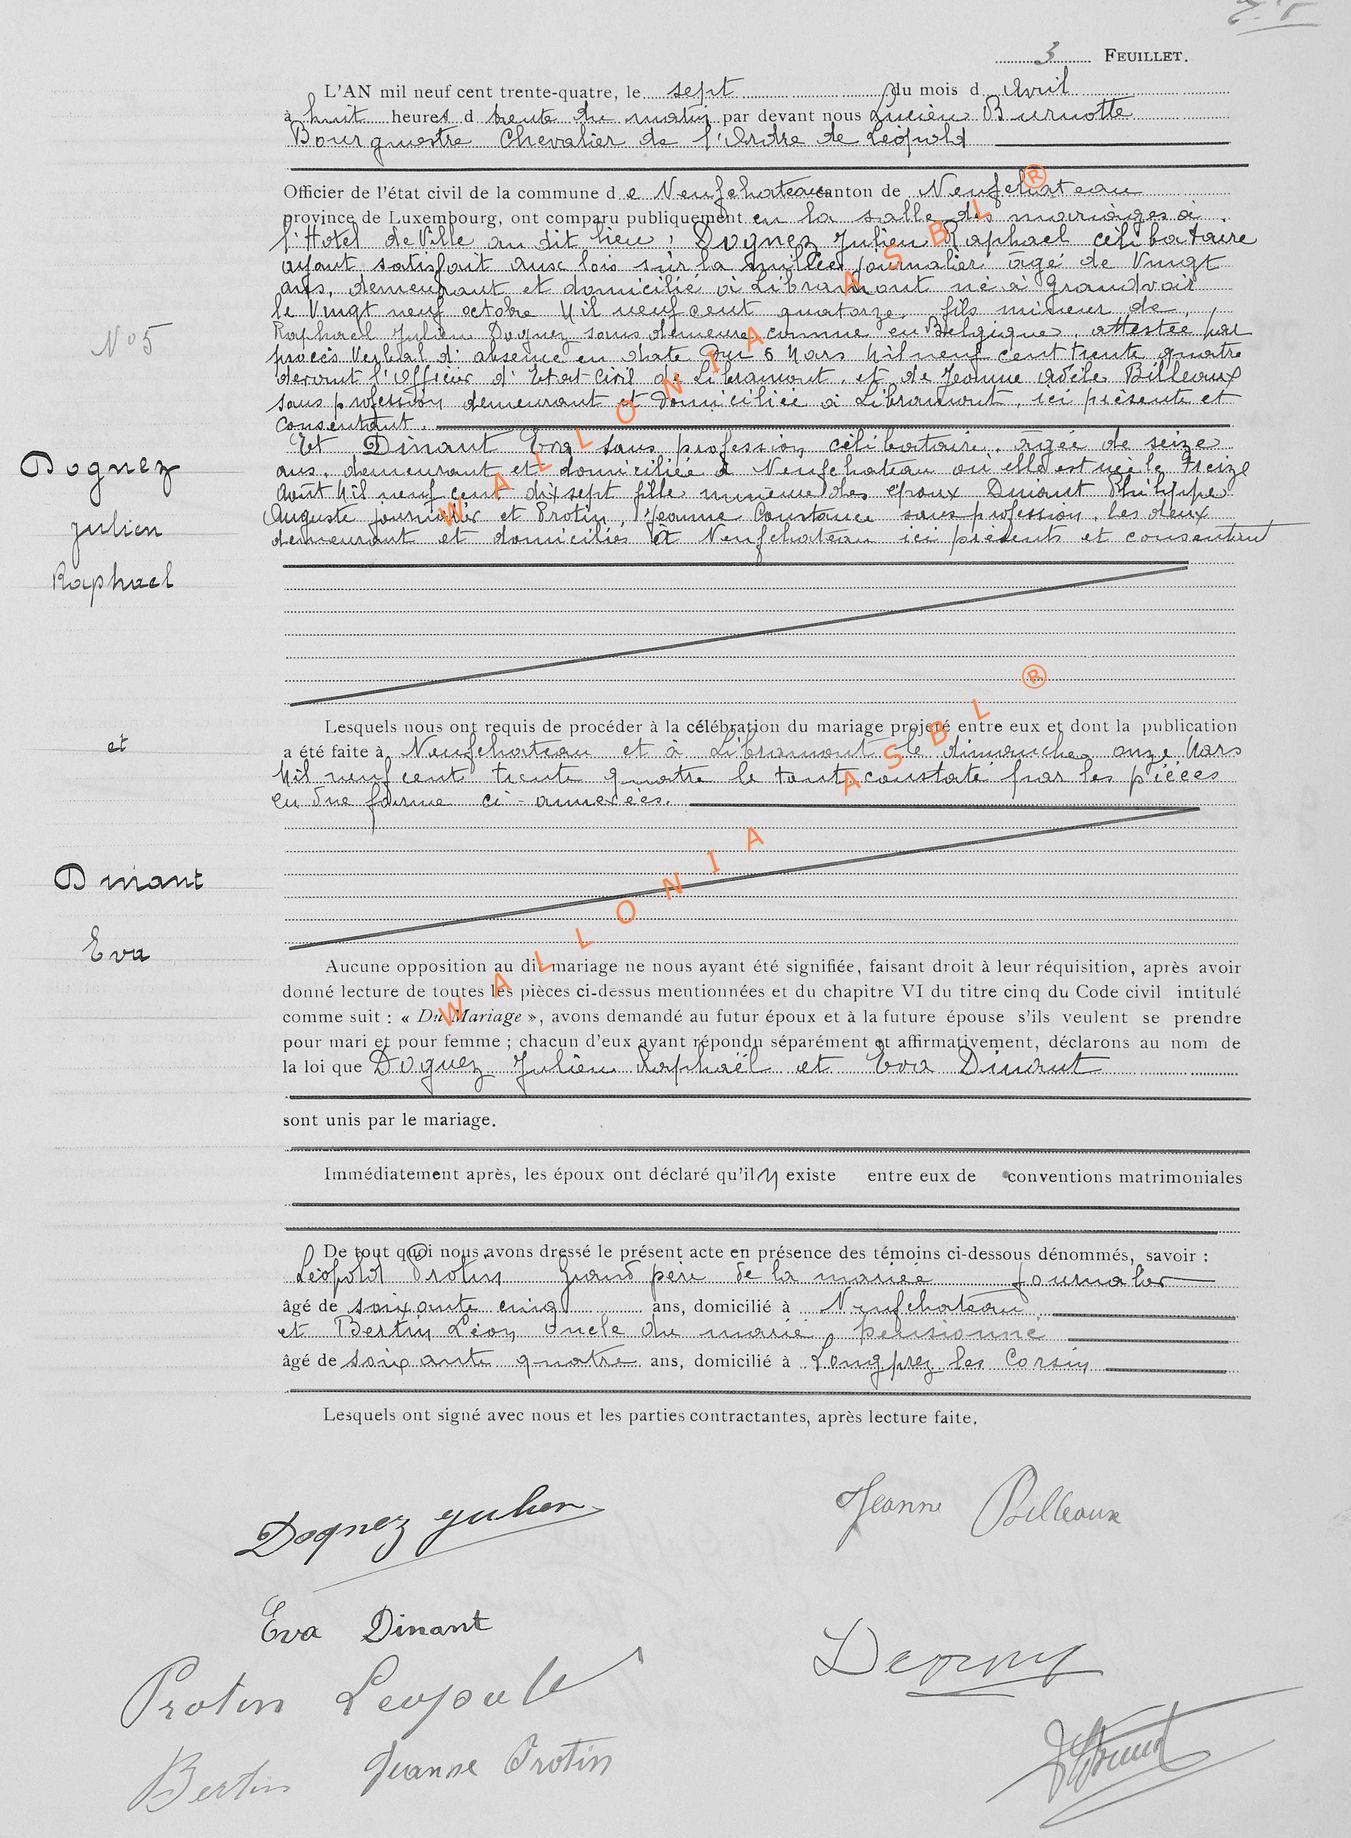 3 FEUILLET.
L'AN mil neuf cent trente-quatre, le sept du mois d Avril
à huit heures d trente du matin par devant nous Lucien Burnotte
Bourgmestre Chevalier de l'Ordre de Léopold
Officier de l'état civil de la commune d e Neufchateau canton de Neufchateau
province de Luxembourg, ont comparu publiquement en la salle des mariages à
l'Hotel de Ville au dit lieu : Dognez Julien Raphael célibataire
ayant satisfait aux lois sur la milice, journalier âgé de Vingt
ans, demeurant et domicilié à Libramont né à Grandvoir
le Vingt neuf octobre Mil neuf cent quatorze, fils mineur de
Raphael Julien Dognez sans demeure connue en Belgique, attestée par
procès Verbal d'absence en date du 5 Mars Mil neuf cent trente quatre
devant l'Officier d'Etat Civil de Libramont, et de Jeanne Adèle Billeaux
sans profession demeurant et domiciliée à Libramont, ici présente et
consentant.
Et Dinant Eva sans profession célibataire, âgée de seize
ans, demeurant et domiciliée à Neufchateau où elle est née le Treize
Août Mil neuf cent dix sept fille mineure des époux Dinant Philippe
Auguste journalier et Protin, Jeanne Constance sans profession, les deux
demeurant et domiciliés à Neufchateau ici présents et consentant
N° 5
Dognez
Julien
Raphael
et
Dinant
Eva
Lesquels nous ont requis de procéder à la célébration du mariage projeté entre eux et dont la publication
a été faite à Neufchateau et à Libramont le dimanche onze Mars
Mil neuf cent trente quatre le tout constaté par les pièces
en due forme ci-annexées.
Aucune opposition au dit mariage ne nous ayant été signifiée, faisant droit à leur réquisition, après avoir
donné lecture de toutes les pièces ci-dessus mentionnées et du chapitre VI du titre cinq du Code civil intitulé
comme suit : « Du Mariage », avons demandé au futur époux et à la future épouse s'ils veulent se prendre
pour mari et pour femme ; chacun d'eux ayant répondu séparément et affirmativement, déclarons au nom de
la loi que Dognez Julien Raphaël et Eva Dinant
sont unis par le mariage.
Immédiatement après, les époux ont déclaré qu'il n existe entre eux de conventions matrimoniales
De tout quoi nous avons dressé le présent acte en présence des témoins ci-dessous dénommés, savoir :
Léopold Protin Grand père de la mariée journalier
âgé de soixante cinq ans, domicilié à Neufchateau
et Bertin Léon oncle du marié, pensionné
âgé de soixante quatre ans, domicilié à Longprez les Corsin
Lesquels ont signé avec nous et les parties contractantes, après lecture faite.
Dognez Julien
Jeanne Billeaux
Eva Dinant
Protin Leopold
Bertin Jeanne Protin
WALLONIA ASBL ®
WALLONIA ASBL ®